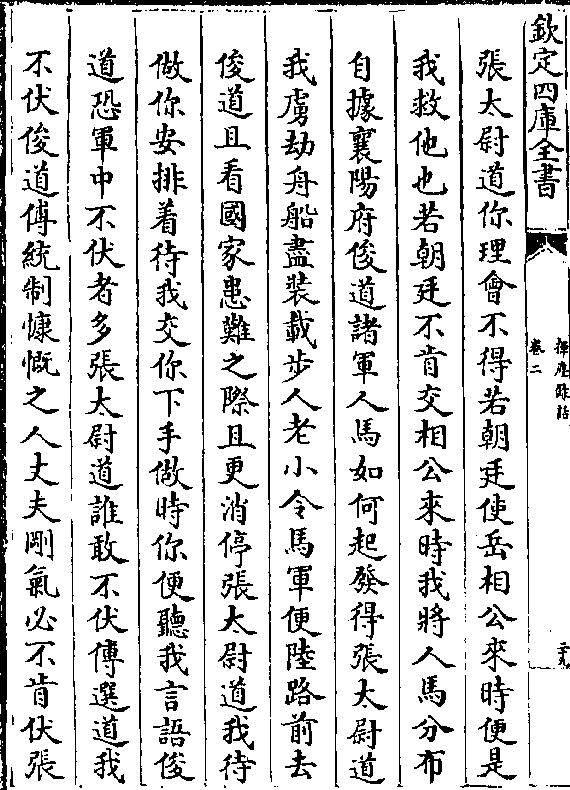 欽定四庫全書
揮麈錄話
卷二
二十九
張太尉道你理會不得若朝廷使岳相公來時便是
我救他也若朝廷不肯交相公來時我將人馬分布
自據襄陽府俊道諸軍人馬如何起發得張太尉道
我虜劫舟船盡裝載步人老小令馬軍便陸路前去
俊道且看國家患難之際且更消停張太尉道我待
做你安排着待我交你下手做時你便聽我言語俊
道恐軍中不伏者多張太尉道誰敢不伏傅選道我
不伏俊道傅統制慷慨之人丈夫剛氣必不肯伏張